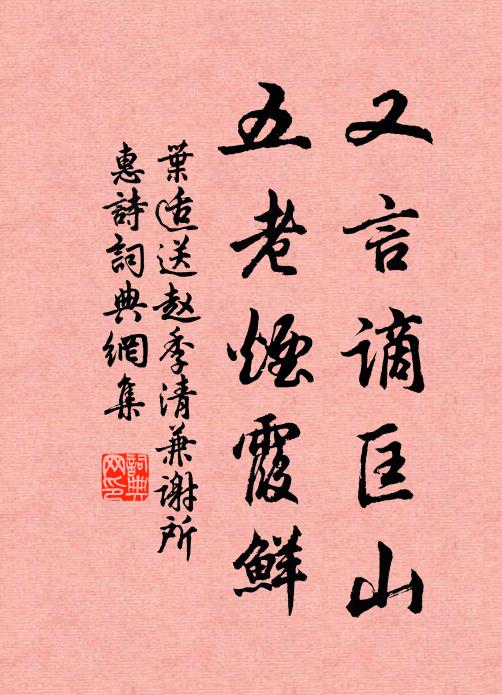 又言谪匡山
五老煙霞鮮
葉适送赵季清兼谢所
惠詩詞典網集
詞典
网印